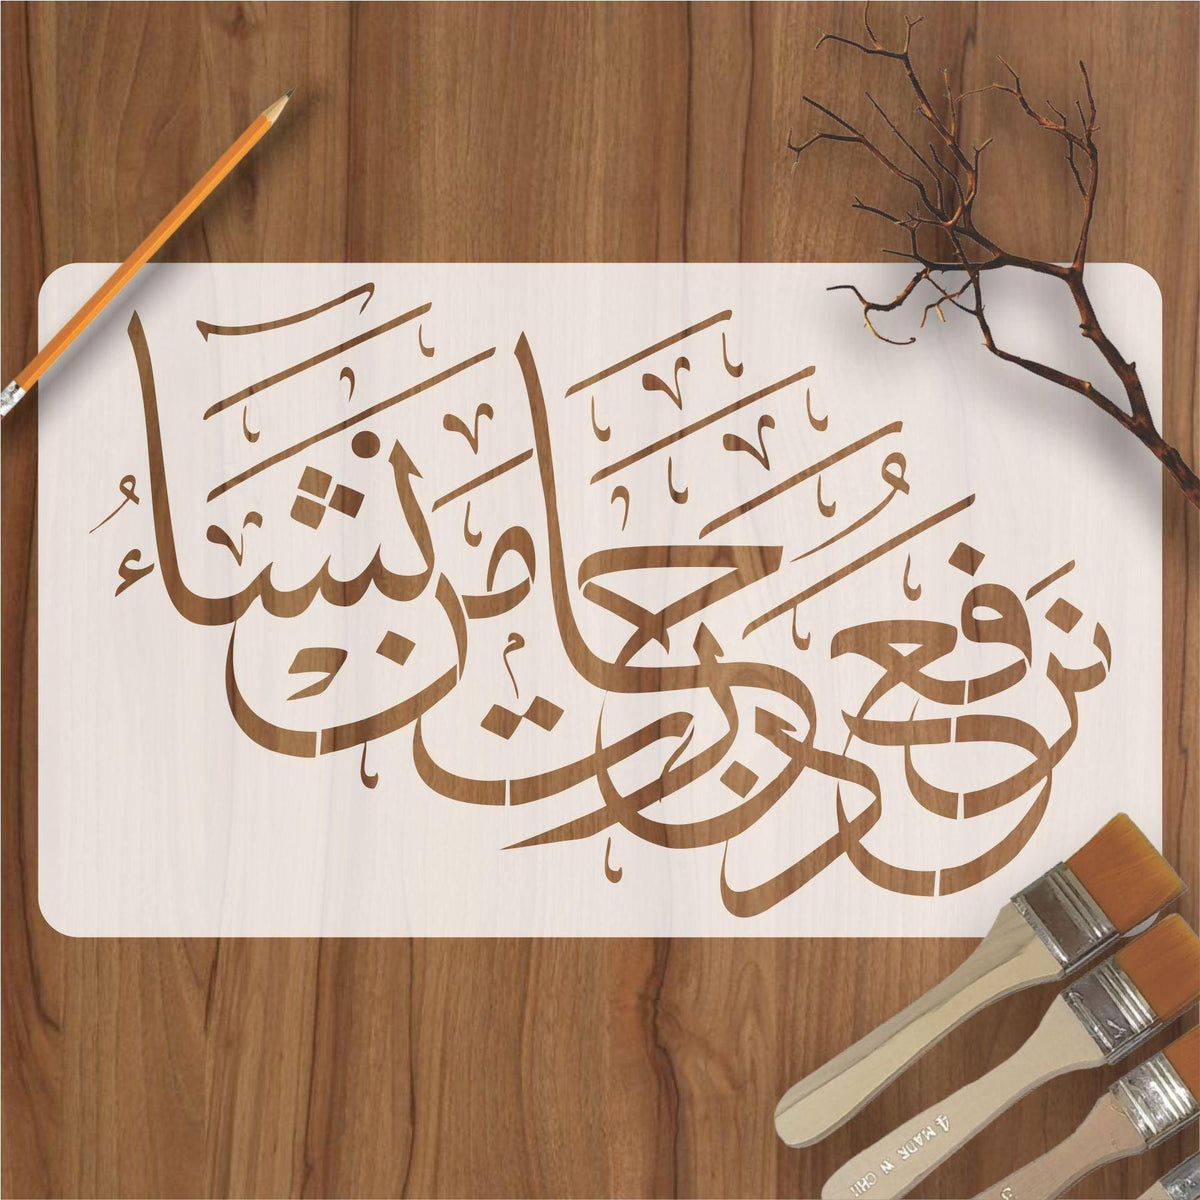 نَرْفَعُ دَرَجَاتٍ مَّن نَّشَاءُ
4 MADE IN CHI
3